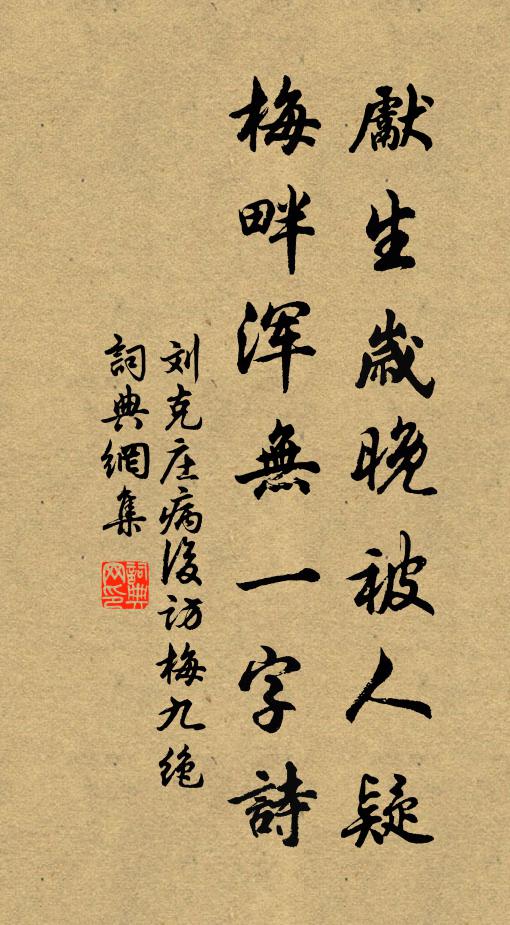 獻生歲晚被人疑
梅畔浑無一字詩
刘克庄病後访梅九絶
詞典網集
詞典网印